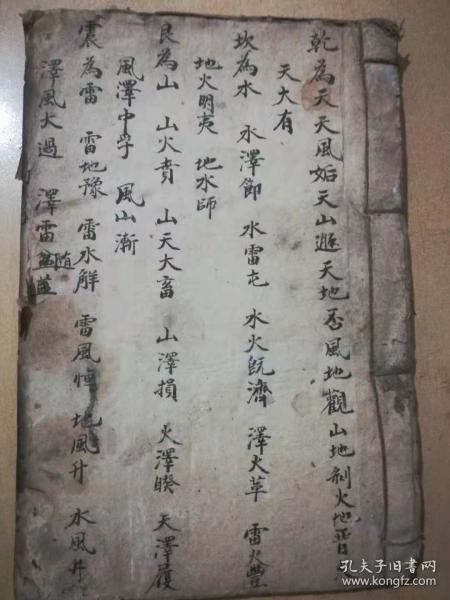 乾為天天風姤天山遯天地否風地觀山地剝火地晉
天大有
坎為水 水澤節 水雷屯 水火既濟 澤火革 雷火豐
地火明夷 地水師
艮為山 山火賁 山天大畜 山澤損 火澤睽 天澤履
風澤中孚 風山漸
震為雷 雷地豫 雷水解 雷風恒 地風升 水風井
澤風大過 澤雷
随
孔夫子旧书网
www.kongfz.com